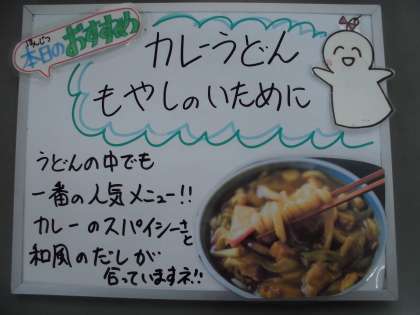 ほんじつ
本日のおすすめ
カレーうどん
もやしのいために
うどんの中でも
一番の人気メニュー!!
カレーのスパイシーさと
和風のだしが
合っていますネ!!